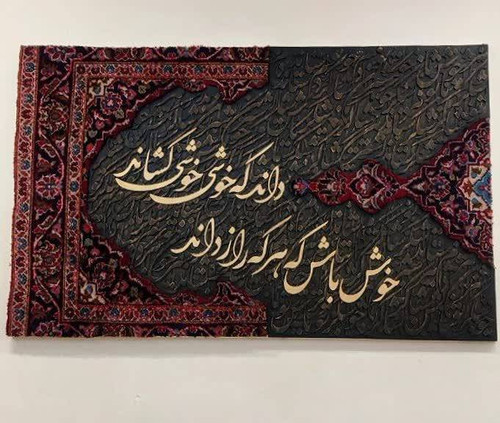 داند که خوشی خوشی کشاند
خوش باش که هر که راز داند